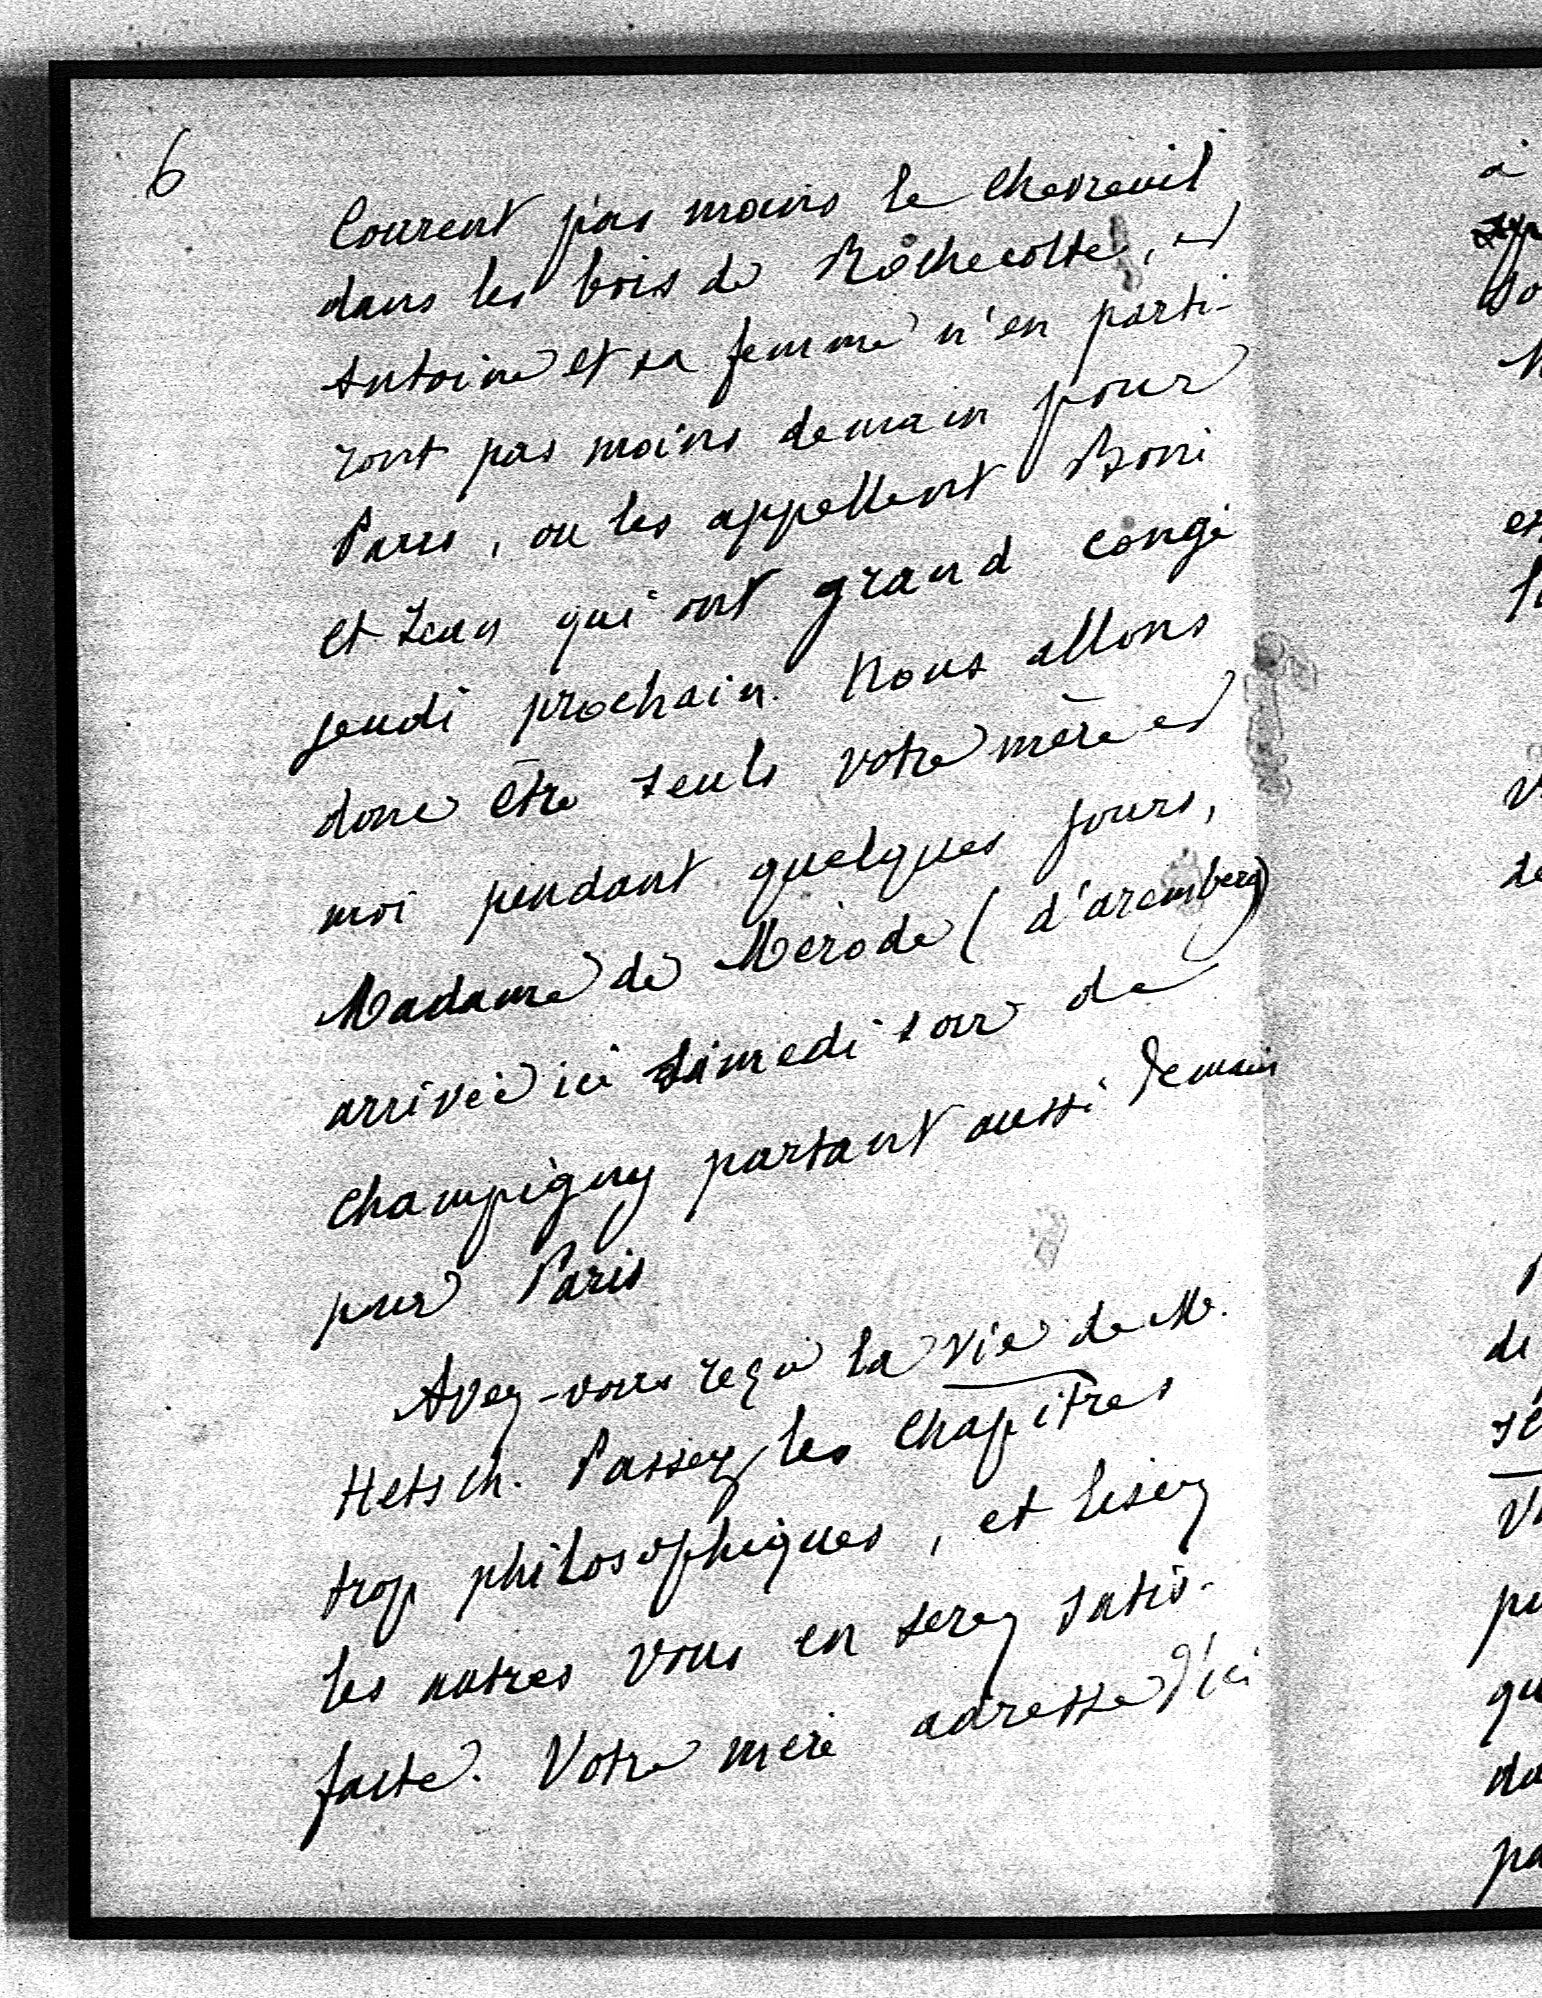 6
courent pas moins le chevreuil
dans les bois de Rochecotte, et
Antoine et sa femme n'en parti-
ront pas moins demain pour
Paris, ou les appellent Boni
et Jean qui ont grand congé
jeudi prochain. Nous allons
donc être seuls votre mère et
moi pendant quelques jours,
Madame de Mérode (d'aremberg)
arrivée ici samedi soir de
Champigny partant aussi demain
pour Paris
Avez-vous reçu la vie de M.
Hetsch. Passez les chapitres
trop philosophiques, et lisez
les autres vous en serez satis-
faite. Votre mère adresse d'ici